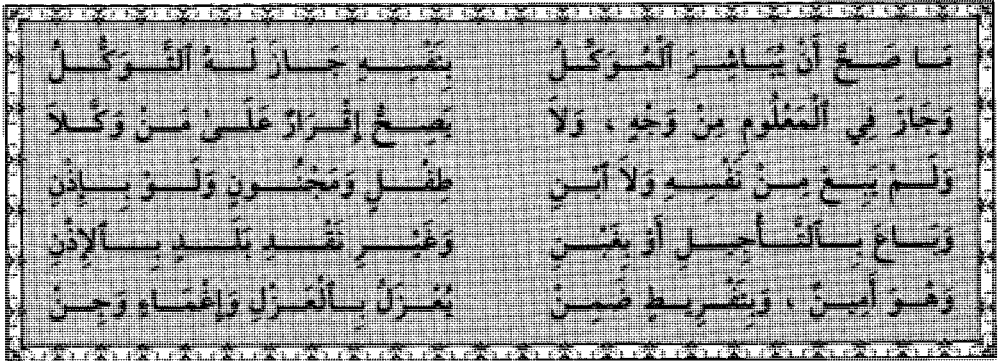 مَا صَحَّ أَنْ يُبَاشِرَ ٱلْمُوَكِّلُ بِنَفْسِهِ جَازَ لَهُ ٱلتَّوَكُّلُ
وَجَازَ فِي ٱلْمَعْلُومِ مِنْ وَجْهٍ ، وَلاَ يَصِحُّ إِقْرَارٌ عَلَىٰ مَنْ وَكَّلاَ
وَلَمْ يَبِعْ مِنْ نَفْسِهِ وَلاَ ٱبْنِ طِفْلٍ وَمَجْنُونٍ وَلَوْ بِإِذْنِ
وَبَاعَ بِٱلتَّأْجِيلِ أَوْ بِغَبْنِ وَغَيْرِ نَقْدِ بَلَدٍ بِٱلإِذْنِ
وَهْوَ أَمِينٌ ، وَبِتَفْرِيطٍ ضَمِنْ يُعْزَلُ بِٱلْعَزْلِ وَإِغْمَاءٍ وَجِنْ